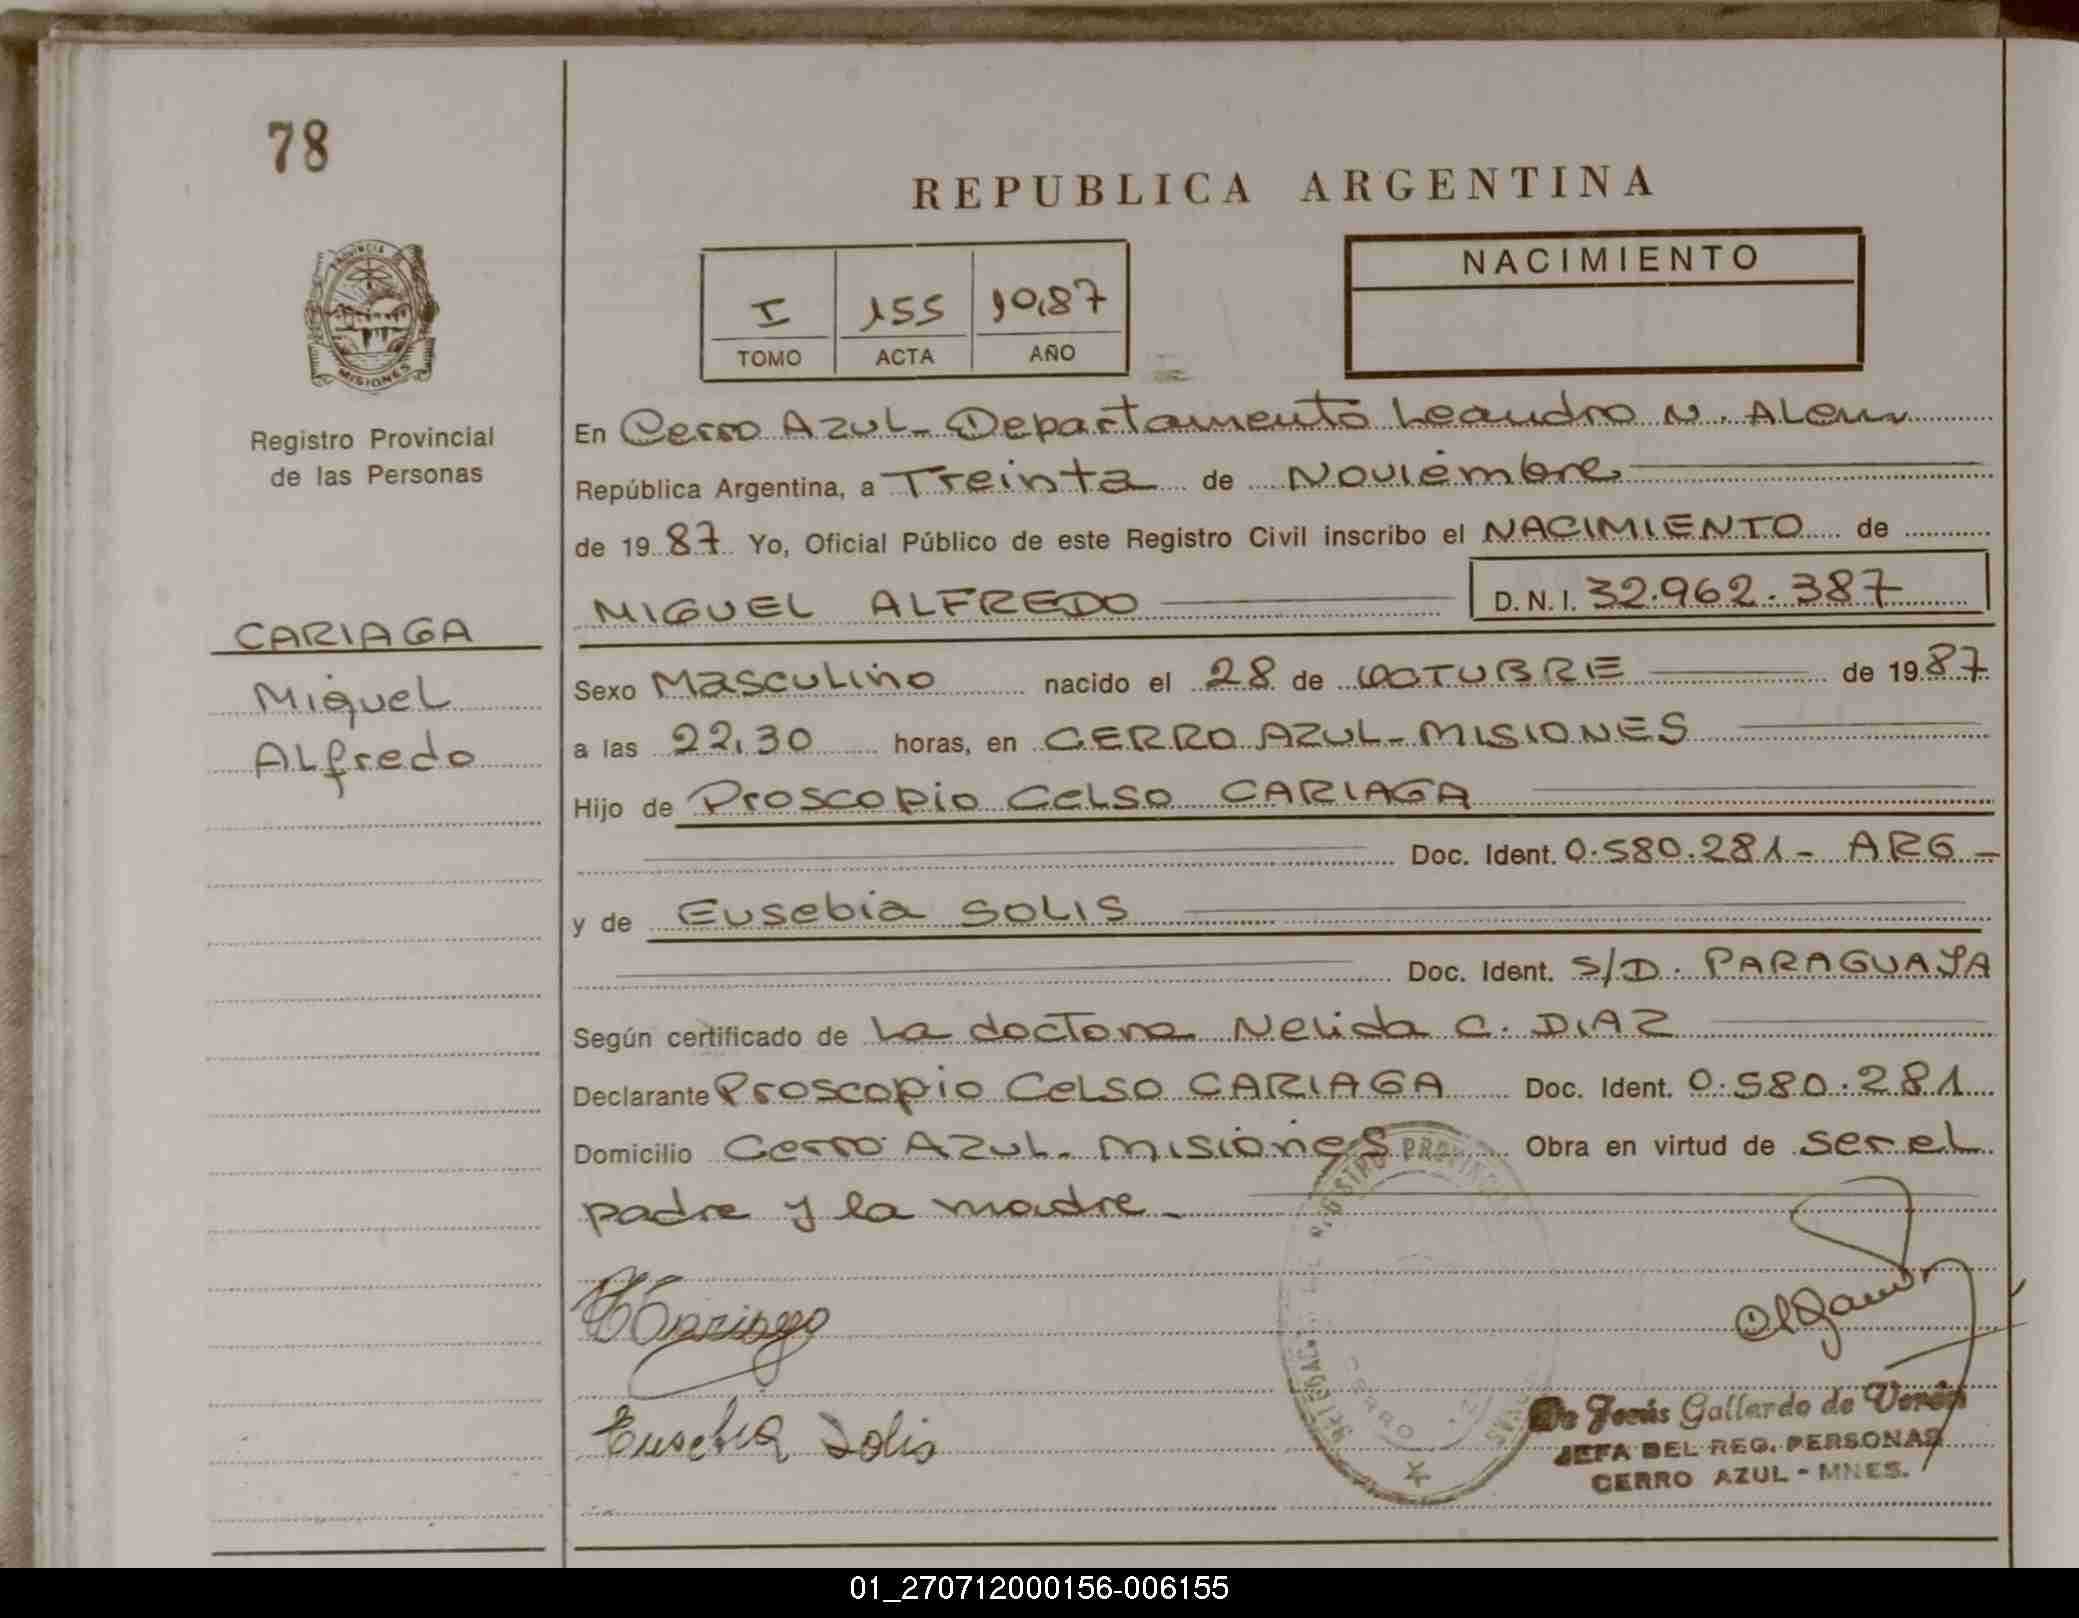 78
REPUBLICA ARGENTINA
PROVINCIA
MISIONES
Registro Provincial
de las Personas
I 155 1987
TOMO ACTA AÑO
NACIMIENTO
En Cerro Azul - Departamento Leandro N. Alem
República Argentina, a Treinta de Noviembre
de 1987 Yo, Oficial Público de este Registro Civil inscribo el NACIMIENTO de
MIGUEL ALFREDO D.N.I. 32.962.387
CARIAGA
Miguel
Alfredo
Sexo Masculino nacido el 28 de OCTUBRE de 1987
a las 22,30 horas, en CERRO AZUL - MISIONES
Hijo de Proscopio Celso CARIAGA
Doc. Ident. 0.580.281 - ARG -
y de Eusebia SOLIS
Doc. Ident. S/D. PARAGUAYA
Según certificado de La doctora Nelida C. DIAZ
Declarante Proscopio Celso CARIAGA Doc. Ident. 0.580.281
Domicilio Cerro Azul - Misiones Obra en virtud de ser el
padre y la madre -
REGISTRO PROVINCIAL
CERRO
Cariaga
Eusebia Solis
De Jesús Gallardo de Verón
JEFA DEL REG. PERSONAS
CERRO AZUL - MNES.
01_270712000156-006155